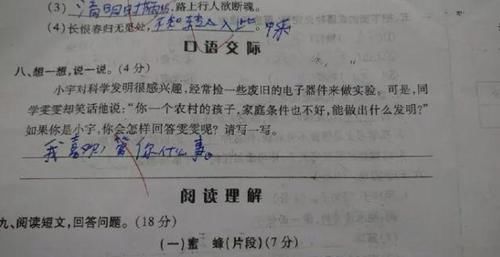 (3) 清明时节雨纷纷,路上行人欲断魂。
(4)长恨春归无觅处,不知转入此中来
口语交际
八、想一想,说一说。(4分)
小宇对科学发明很感兴趣,经常捡一些废旧的电子器件来做实验。可是,同
学雯雯却笑话他说:“你一个农村的孩子,家庭条件也不好,能做出什么发明?”
如果你是小宇,你会怎样回答雯雯呢?请写一写。
我喜欢,管你什么事。
阅读理解
九、阅读短文,回答问题。(18分)
(一)蜜 蜂(片段)(7分)